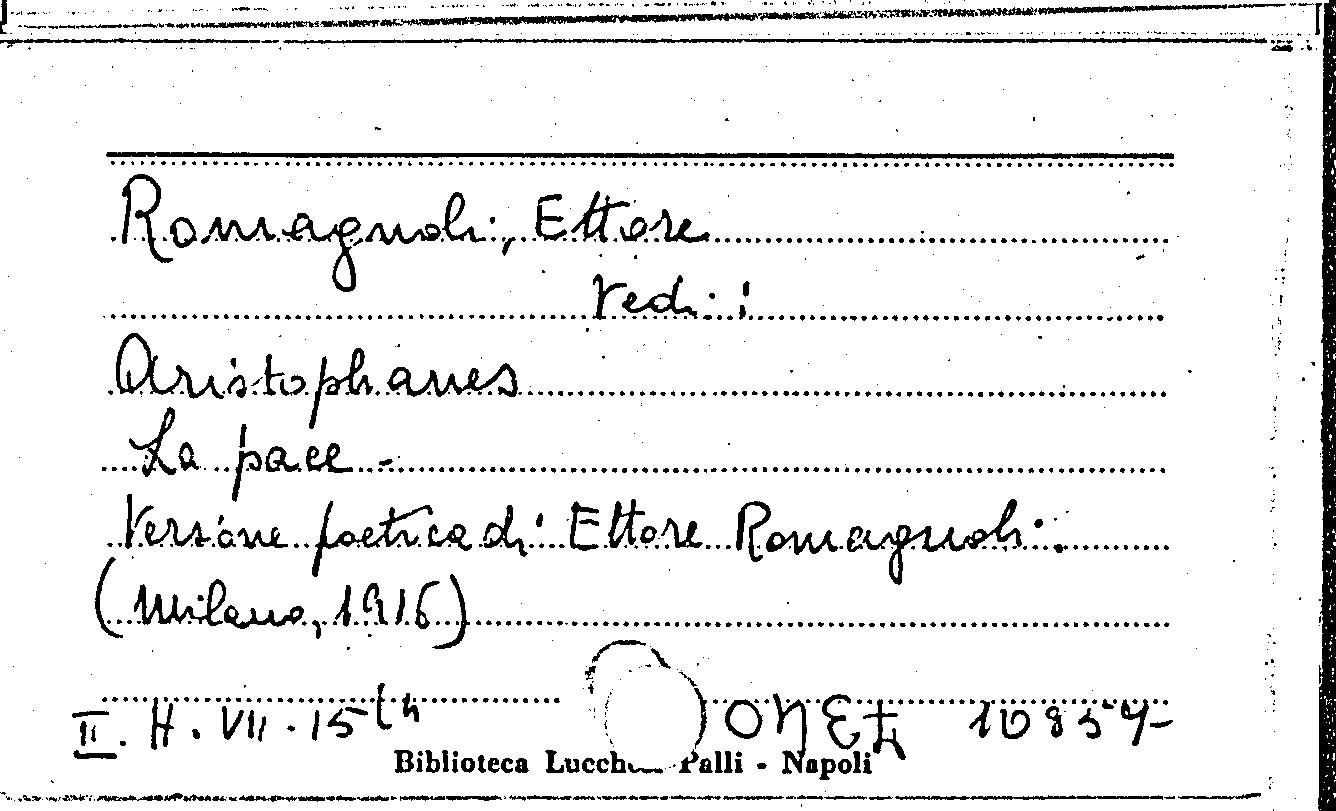 Romagnoli, Ettore
Vedi:
Aristophanes
La pace -
Versione poetica di Ettore Romagnoli.
(Milano, 1916)
II. H. VII. 15
Biblioteca Palli - Napoli